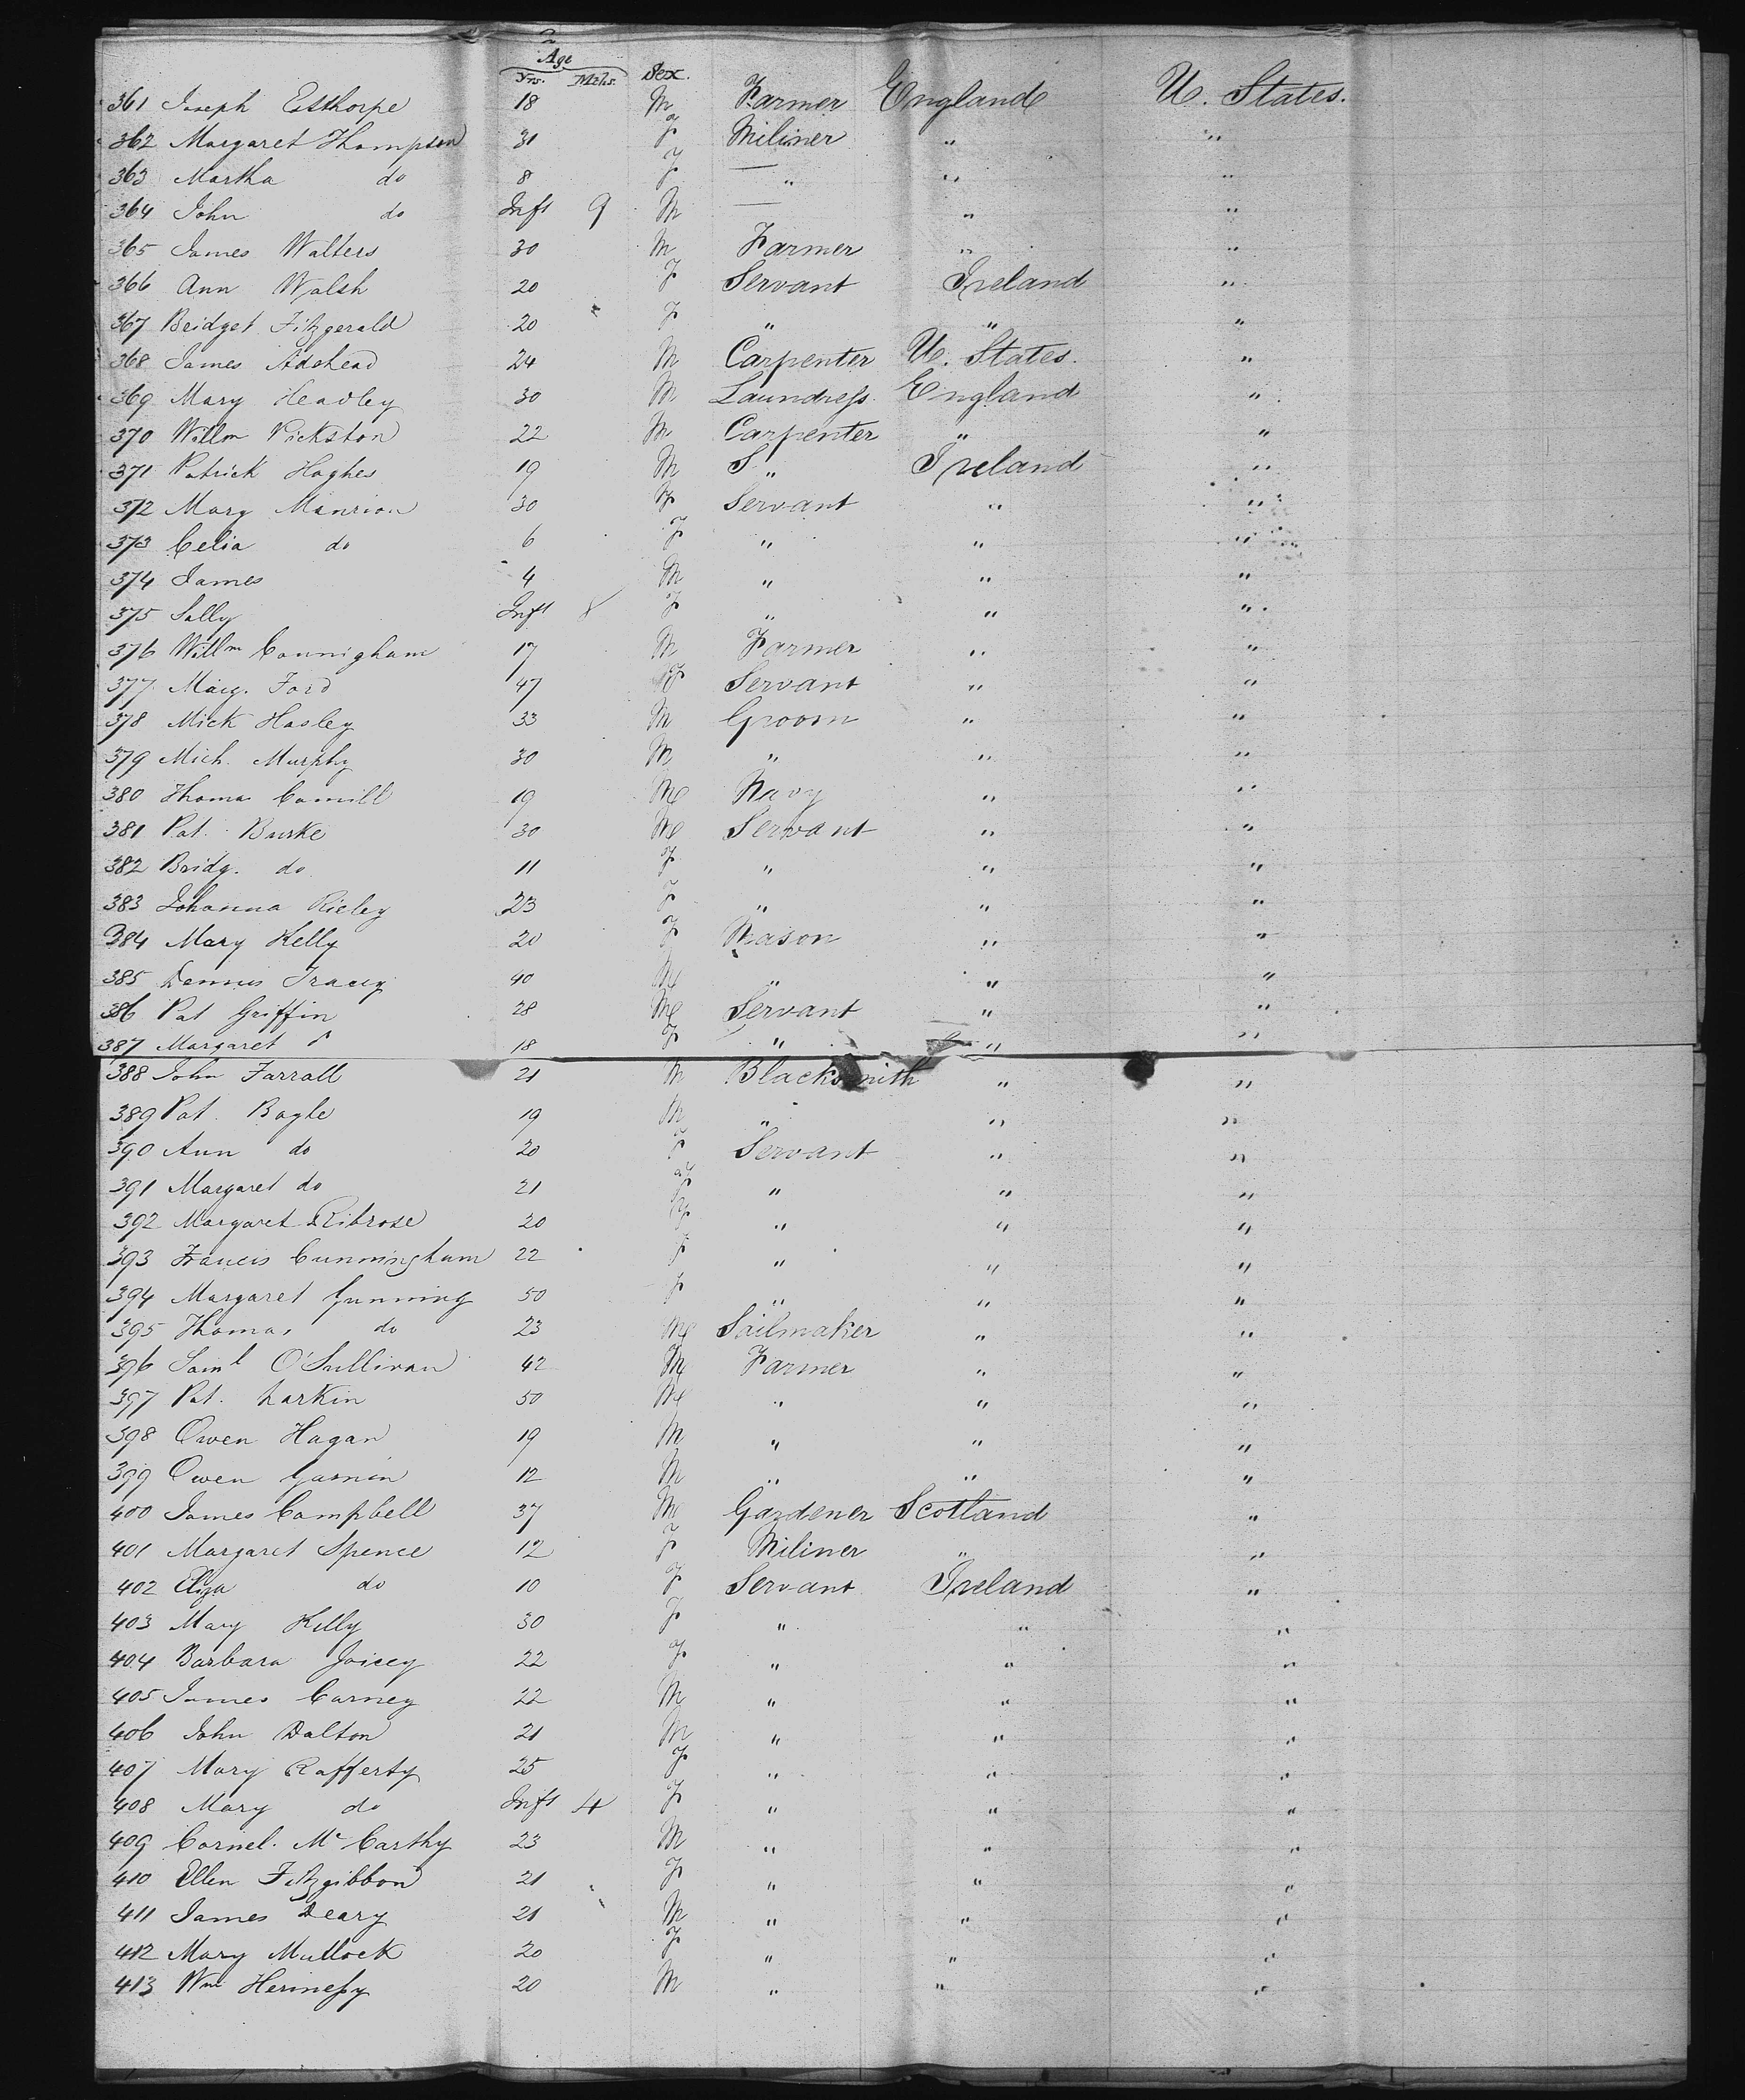 2
Age
Yrs. Mths. Sex.
361 Joseph Esthorpe 18 M Farmer England U. States.
362 Margaret Thompson 31 F Miliner " "
363 Martha do 8 F — " " "
364 John do Inft 9 M — " "
365 James Walters 30 M Farmer " "
366 Ann Walsh 20 F Servant Ireland "
367 Bridget Fitzgerald 20 F " " "
368 James Adshead 24 M Carpenter U. States. "
369 Mary Headley 30 M Laundress England "
370 Willm Pickston 22 M Carpenter " "
371 Patrick Hughes 19 M S " Ireland "
372 Mary Manrion 30 F Servant " "
373 Celia do 6 F " " "
374 James 4 M " " "
375 Sally Inft 8 F " " "
376 Willm Counigham 17 M Farmer " "
377 Marg. Ford 47 F Servant " "
378 Mick Hasley 33 M Groom " "
379 Mich. Murphy 30 M " " "
380 Thoma Camill 19 M Navy " "
381 Pat. Burke 30 M Servant " "
382 Bridg. do 11 F " " "
383 Johanna Rieley 23 F " " "
384 Mary Kelly 20 F Mason " "
385 Dennis Tracey 40 M " " "
386 Pat Griffin 28 M Servant " "
387 Margaret do 18 F " " "
388 John Farrall 21 M Blacksmith " "
389 Pat. Bogle 19 M " " "
390 Ann do 20 F Servant " "
391 Margaret do 21 F " " "
392 Margaret Ribrose 20 F " " "
393 Francis Cunningham 22 F " " "
394 Margaret Gunning 50 F " " "
395 Thomas do 23 M Sailmaker " "
396 Saml O'Sullivan 42 M Farmer " "
397 Pat. Larkin 50 M " " "
398 Owen Hagan 19 M " " "
399 Owen Garnin 12 M " " "
400 James Campbell 37 M Gardener Scotland "
401 Margaret Spence 12 F Miliner " "
402 Eliza do 10 F Servant Ireland "
403 Mary Kelly 30 F " " "
404 Barbara Joicey 22 F " " "
405 James Carney 22 M " " "
406 John Dalton 21 M " " "
407 Mary Rafferty 25 F " " "
408 Mary do Inft 4 F " " "
409 Cornel. McCarthy 23 M " " "
410 Ellen Fitzgibbon 21 F " " "
411 James Deary 21 M " " "
412 Mary Mullock 20 F " " "
413 Wm Hennessy 20 M " " "